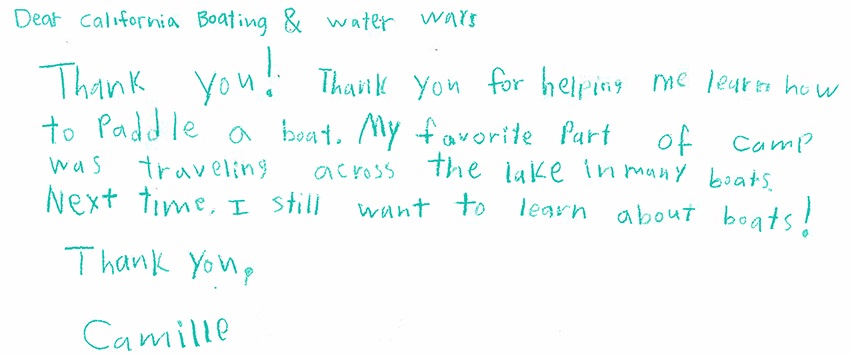 Dear California Boating & water wars
Thank you! Thank you for helping me learn how
to Paddle a boat. My favorite Part of camp
was traveling across the lake in many boats.
Next time, I still want to learn about boats!
Thank you,
Camille